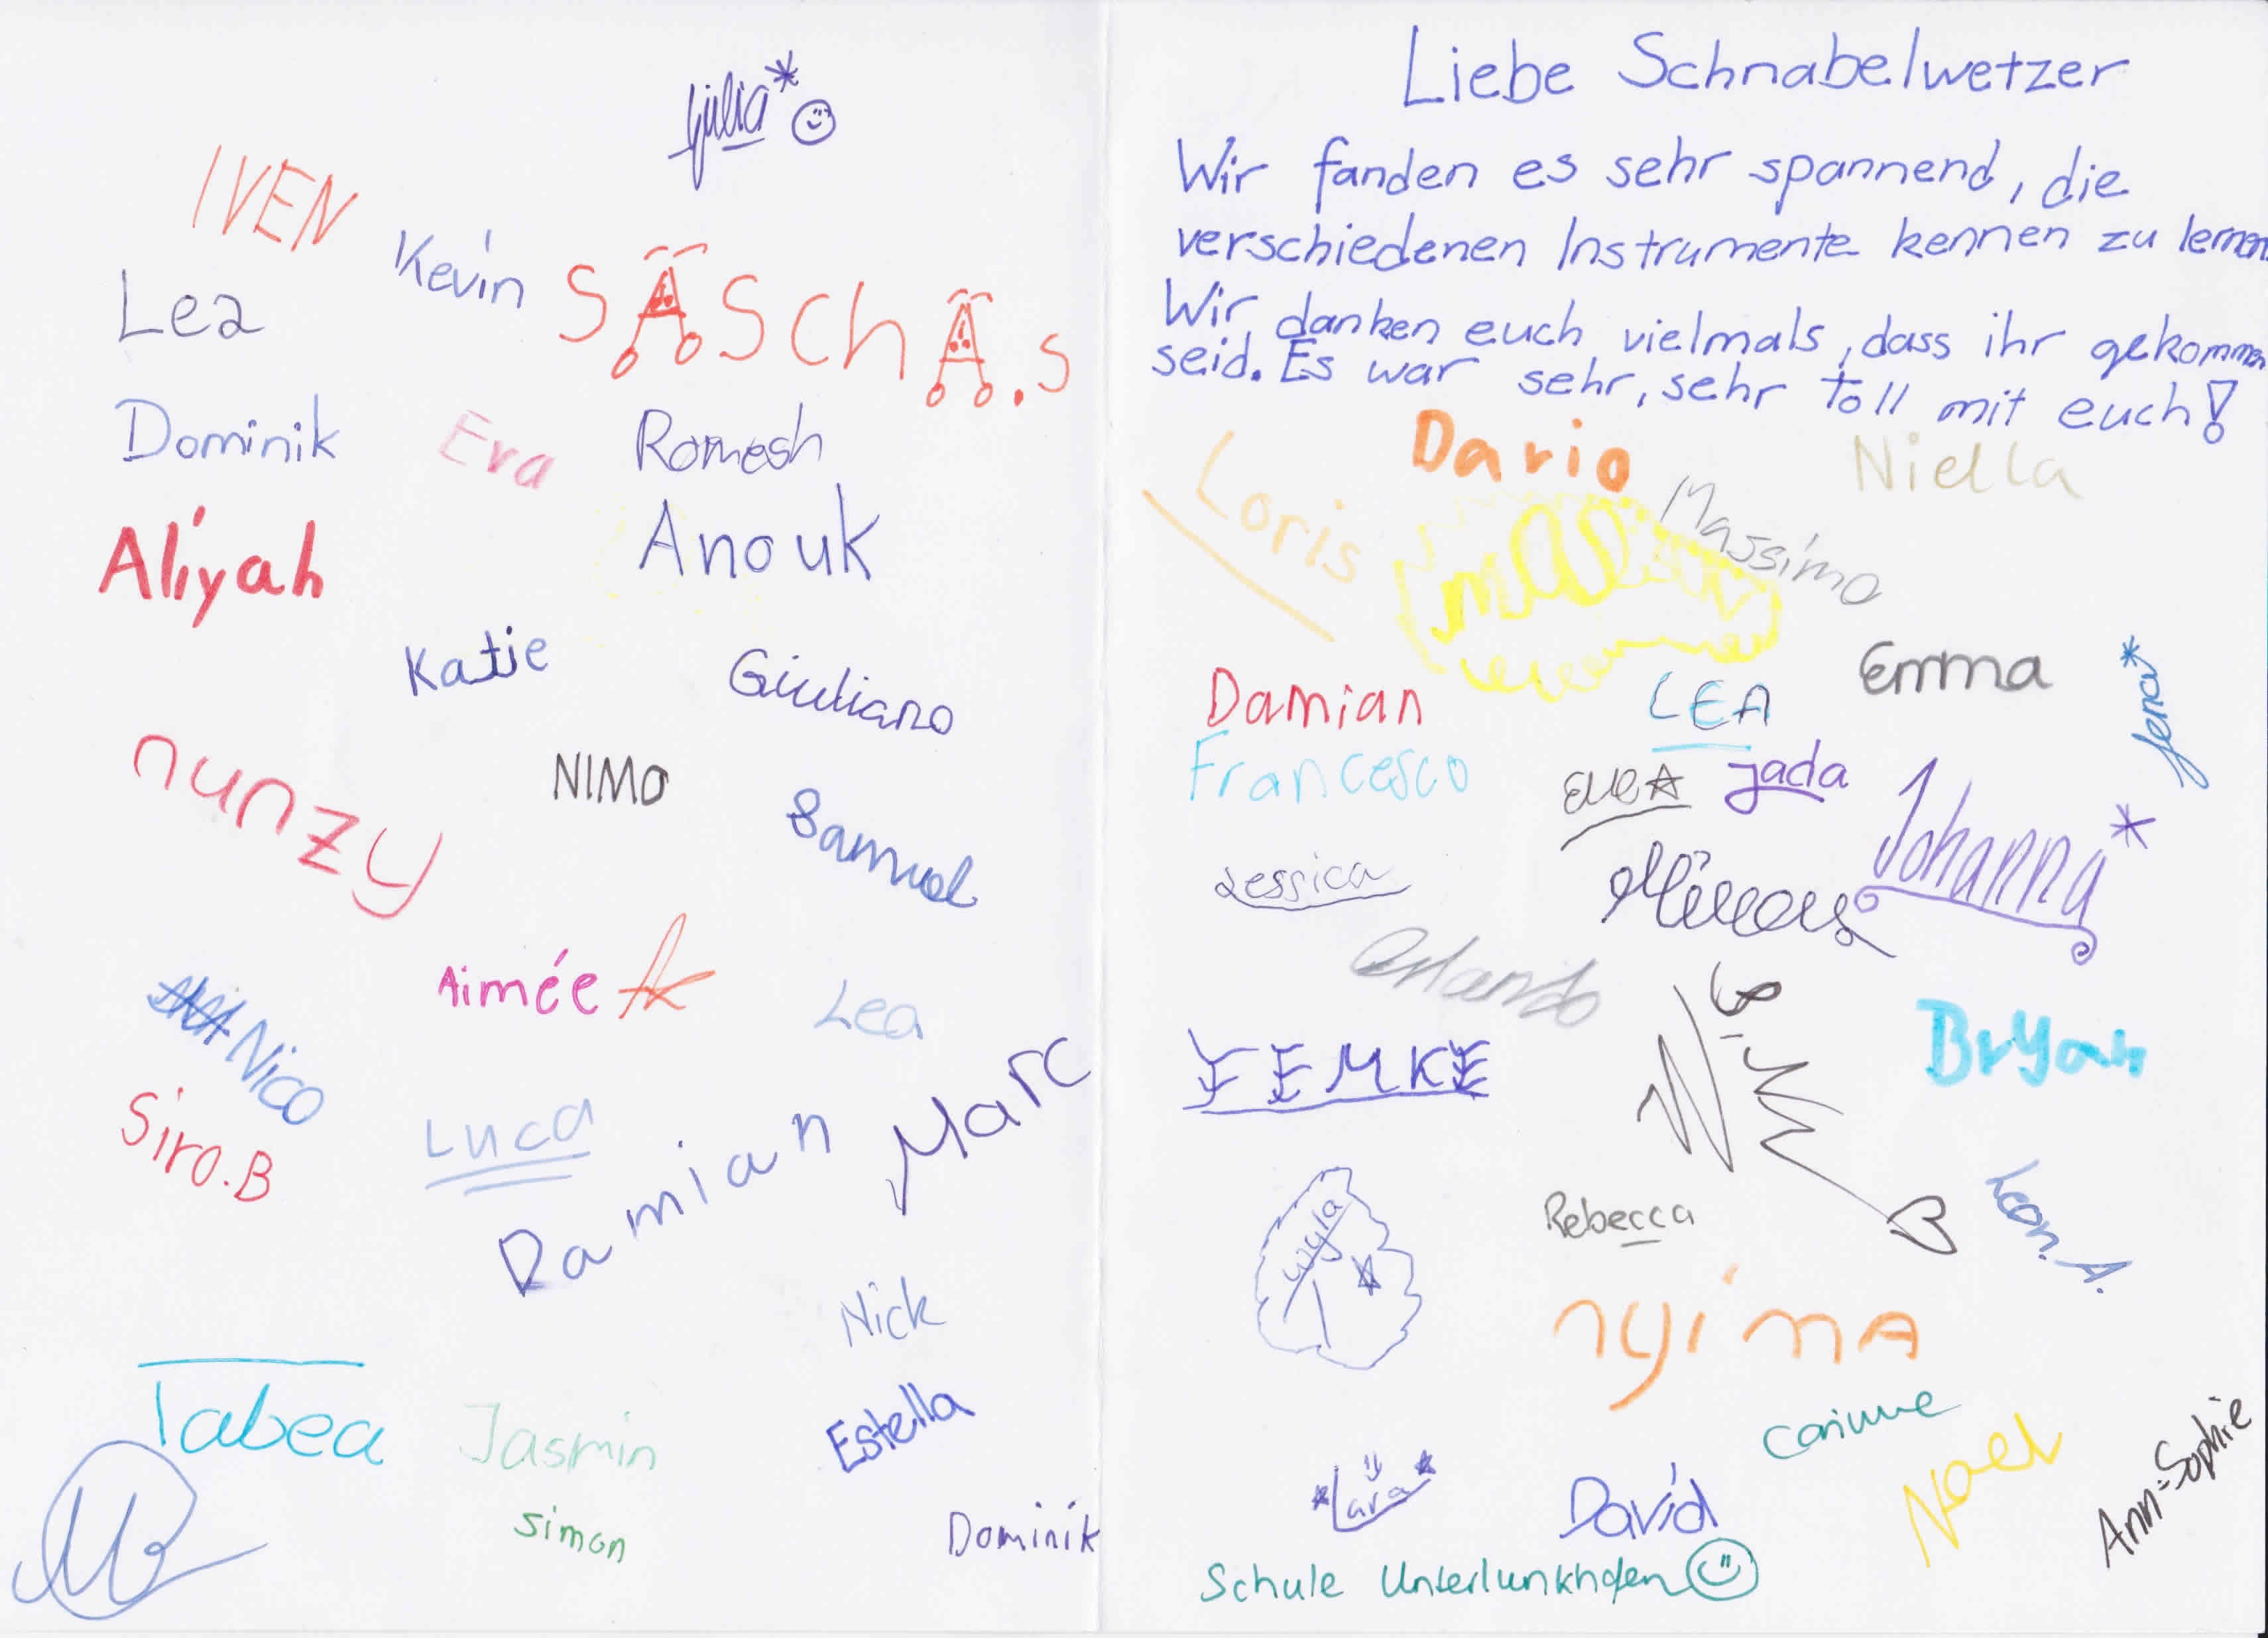 Julia*
IVEN
Kevin
SÄSCHÄ.S
Lea
Dominik
Eva
Romesh
Aliyah
Anouk
Katie
Giuliano
nunzy
NIMO
Samuel
Aimée
Lea
Nico
Siro.B
Luca
Damian
Marc
Nick
Tabea
Jasmin
Estella
Simon
Dominik
Liebe Schnabelwetzer
Wir fanden es sehr spannend, die
verschiedenen Instrumente kennen zu lernen.
Wir danken euch vielmals, dass ihr gekommen
seid. Es war sehr, sehr toll mit euch!
Dario
Niella
Loris
Massimo
Damian
LEA
Emma
Jena*
Francesco
Jada
Johanna*
Jessica
Orlando
FEMKE
Bryan
Rebecca
Leon. A.
nyimA
Corinne
Noel
Ann-Sophie
*Lara*
David
Schule Unterlunkhofen